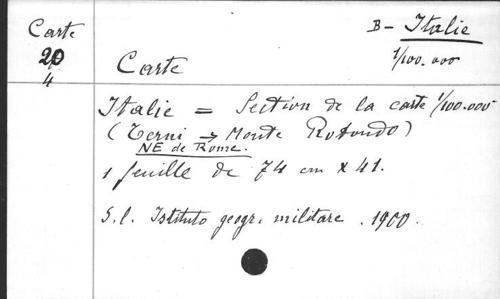 Carte
20
4
B - Italie
1/100.000
Carte
Italie = Section de la carte 1/100.000
(Terni → Monte Rotondo)
NE de Rome.
1 feuille de 74 cm x 41.
S.l. Istituto geogr. militare. 1900.